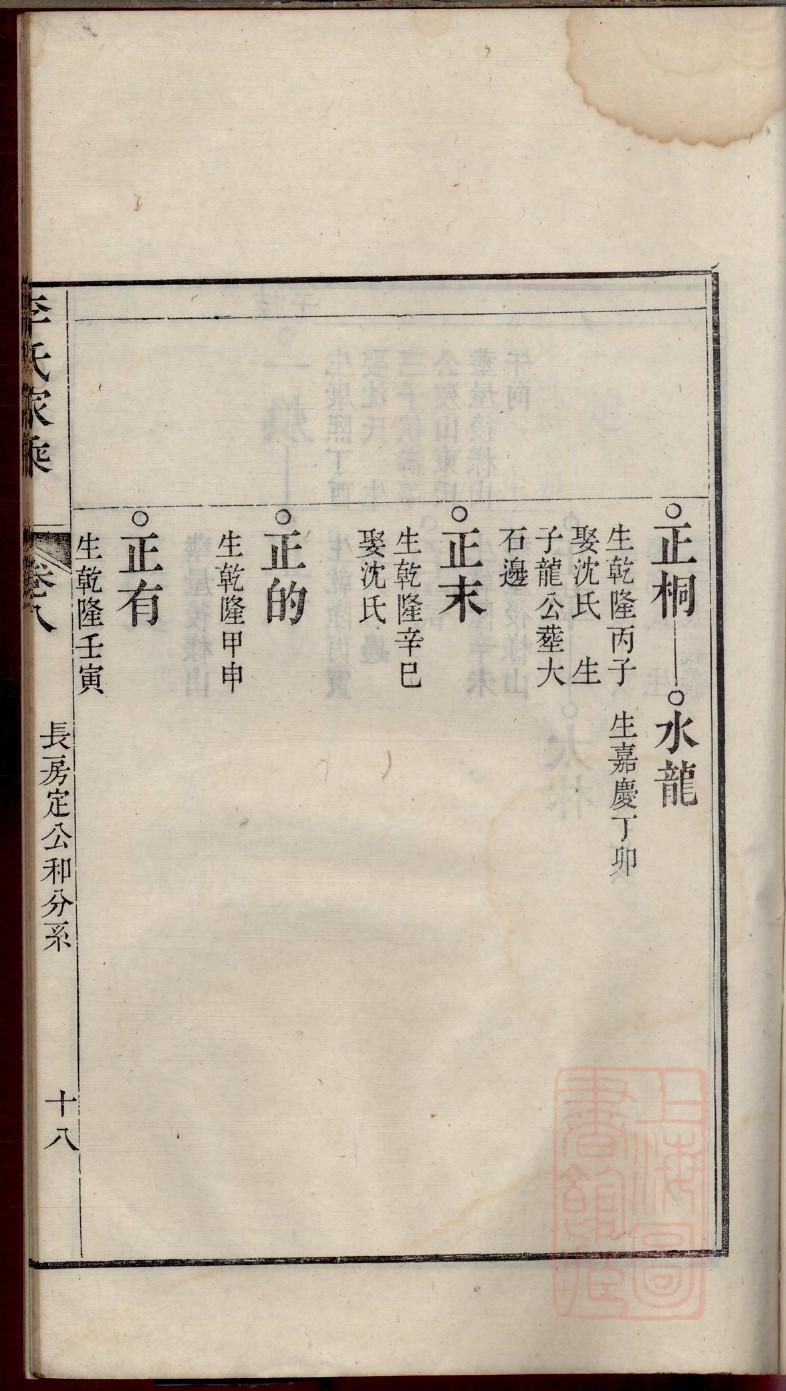 正桐
生乾隆丙子
娶沈氏 生
子龍公塟大
石邊
水龍
生嘉慶丁卯
正末
生乾隆辛巳
娶沈氏
正的
生乾隆甲申
正有
生乾隆壬寅
李氏家乘
卷八
長房定公和分系
十八
上海圖
書館藏